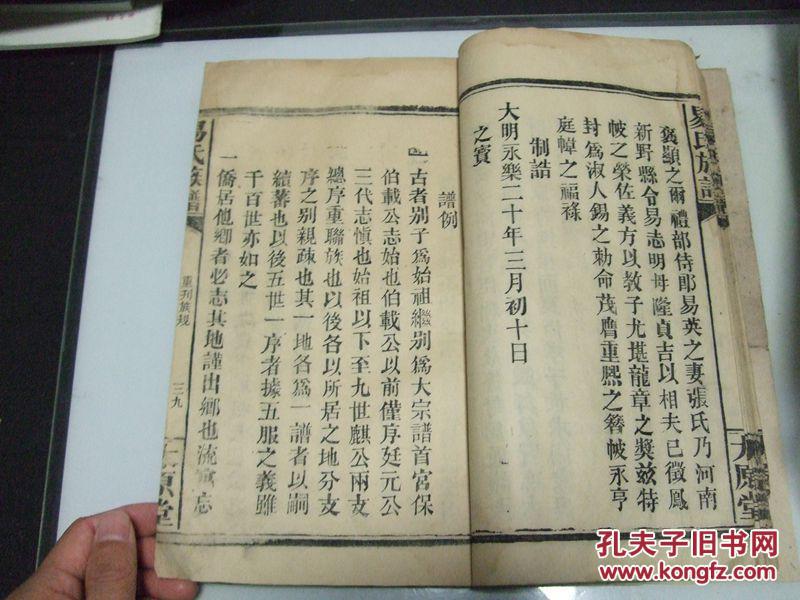 易氏族譜
褒顯之爾禮部侍郎易英之妻張氏乃河南
新野縣令易志明毋隆貞吉以相夫已徵鳳
帔之榮佐義方以教子尤堪龍章之獎玆特
封為淑人錫之勅命茂膺重熙之簪帔永亨
庭幃之福祿
制誥
大明永樂二十年三月初十日
之寳
譜例
一古者别子為始祖繼别為大宗譜首宫保
伯載公志始也伯載公以前僅序廷元公
三代志愼也始祖以下至九世麒公兩支
總序重聯族也以後各以所居之地分支
序之别親疎也其一地各為一譜者以嗣
續蕃也以後五世一序者據五服之義雖
千百世亦如之
一僑居他鄉者必志其地謹出鄉也流寓忘
易氏族譜
重刊族規
三九
太原堂
孔夫子旧书网
www.kongfz.com